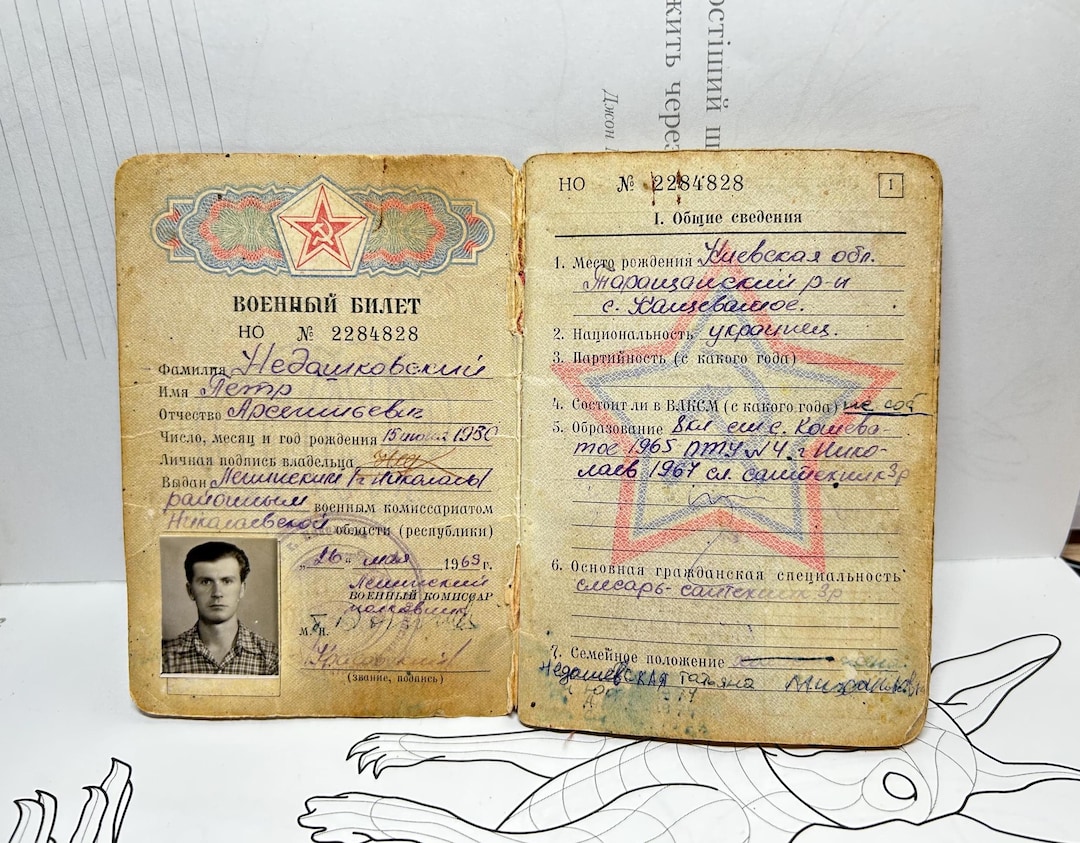 остіший
жить через
Джон
ВОЕННЫЙ БИЛЕТ
НО № 2284828
Фамилия Недашковский
Имя Петр
Отчество Арсентьевич
Число, месяц и год рождения 1950
Личная подпись владельца
Выдан Ленинский г. Николаевы
районным военным комиссариатом
Николаевской области (республики)
„26" мая 1969 г.
Ленинский
ВОЕННЫЙ КОМИССАР
полковник
М. П.
(звание, подпись)
НО № 2284828 1
I. Общие сведения
1. Место рождения Киевская обл.
Таращанский р-н
с.
2. Национальность украинец.
3. Партийность (с какого года)
4. Состоит ли в ВЛКСМ (с какого года) не сос
5. Образование 8кл с. Кошева-
тое 1965 ПТУ №4 г. Нико-
лаев 1967 сл. сантехник 3р
6. Основная гражданская специальность
слесарь-сантехник 3р
7. Семейное положение
Татьяна